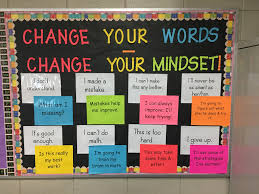 CHANGE YOUR WORDS
-
CHANGE YOUR MINDSET!
I don't
understand.
I made a
mistake.
I can't make
this any better.
I'll never be
as smart as
What am I
missing?
Mistakes help
me improve.
I can always
improve; I'll
keep trying!
I'm going to
figure out what
It's good
enough.
I can't do
math.
This is too
hard
I give up.
Is this really
my best
work?
I'm going to
train my
brain in math
This may take
some time &
effort.
I'll use some of
the strategies